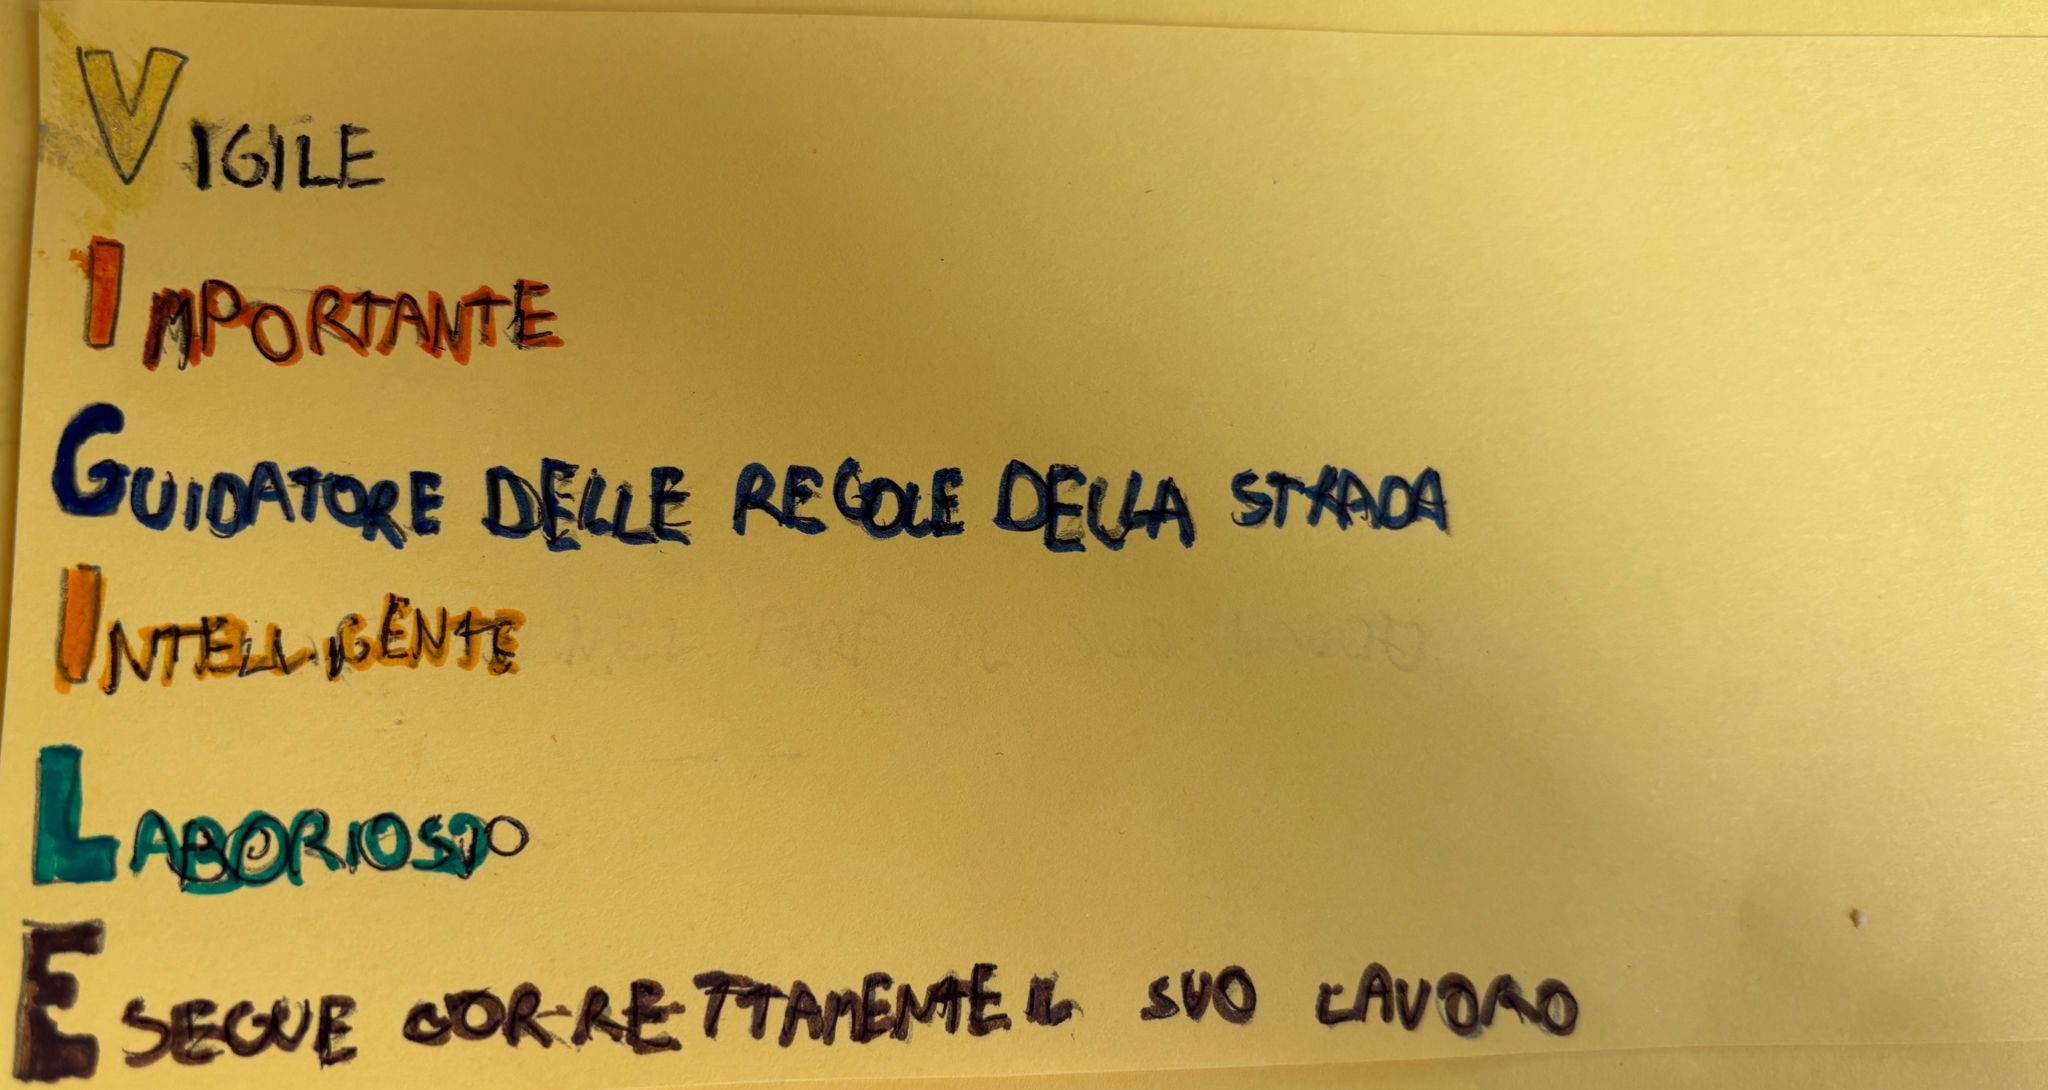 VIGILE
IMPORTANTE
GUIDATORE DELLE REGOLE DELLA STRADA
INTELLIGENTE
LABORIOSO
ESEGUE CORRETTAMENTE IL SUO LAVORO